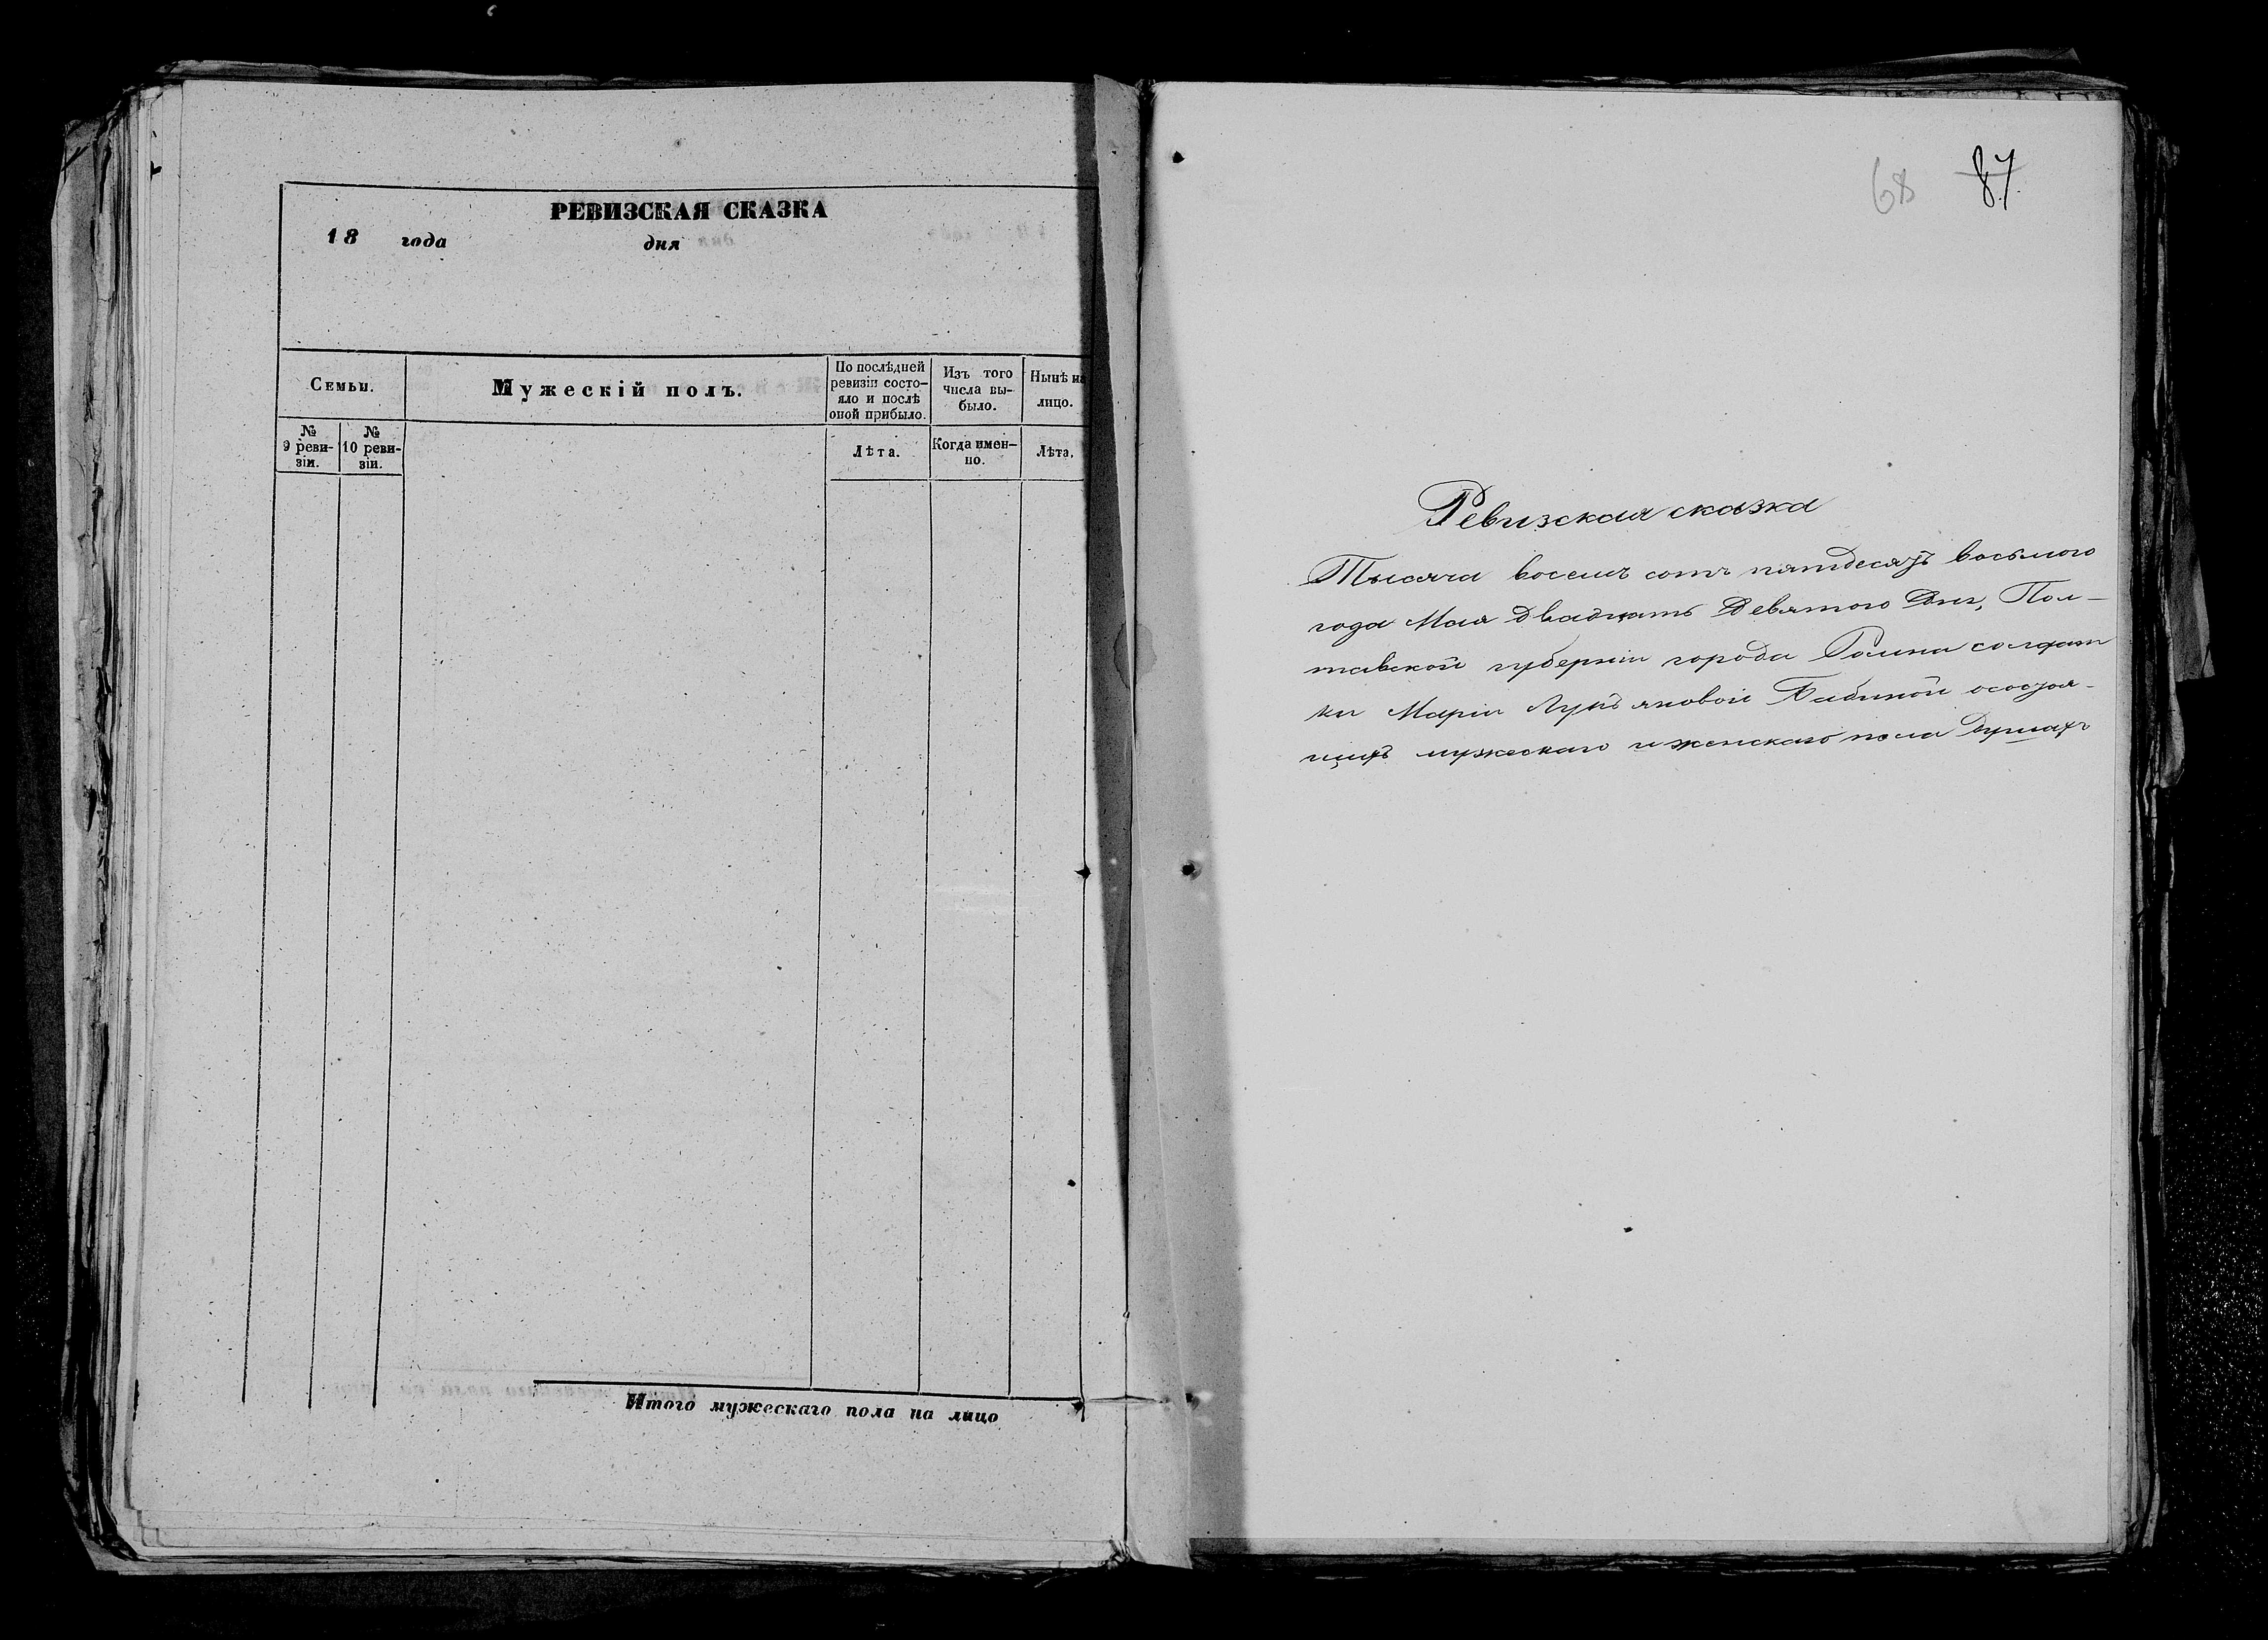 РЕВИЗСКАЯ СКАЗКА
18 года дня
Семьи.
Мужескій полъ.
По послѣдней
ревизіи состо-
яло и послѣ
оной прибыло.
Изъ того
числа вы-
было.
Нынѣ на
лицо.
№
9 реви-
зіи.
№
10 реви-
зіи.
Лѣта.
Когда имен-
но.
Лѣта.
Итого мужескаго пола на лицо
68 87.
Ревизская сказка
Тысяча восемъ сотъ пятдесятъ восьмого
года Мая двадцать Девятого Дня, Пол-
тавской губерніи города Ромна солдат
ки Маріи Лукъяновой Бабиной осостоя-
щихъ мужескаго и женскаго пола душахъ